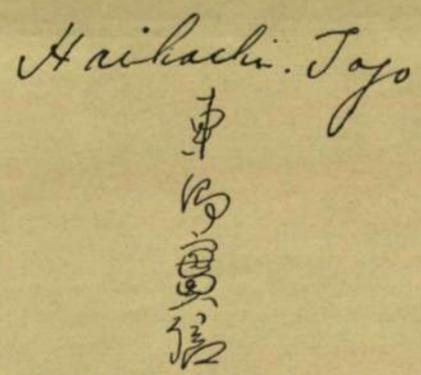 Heihachi. Togo
東郷實